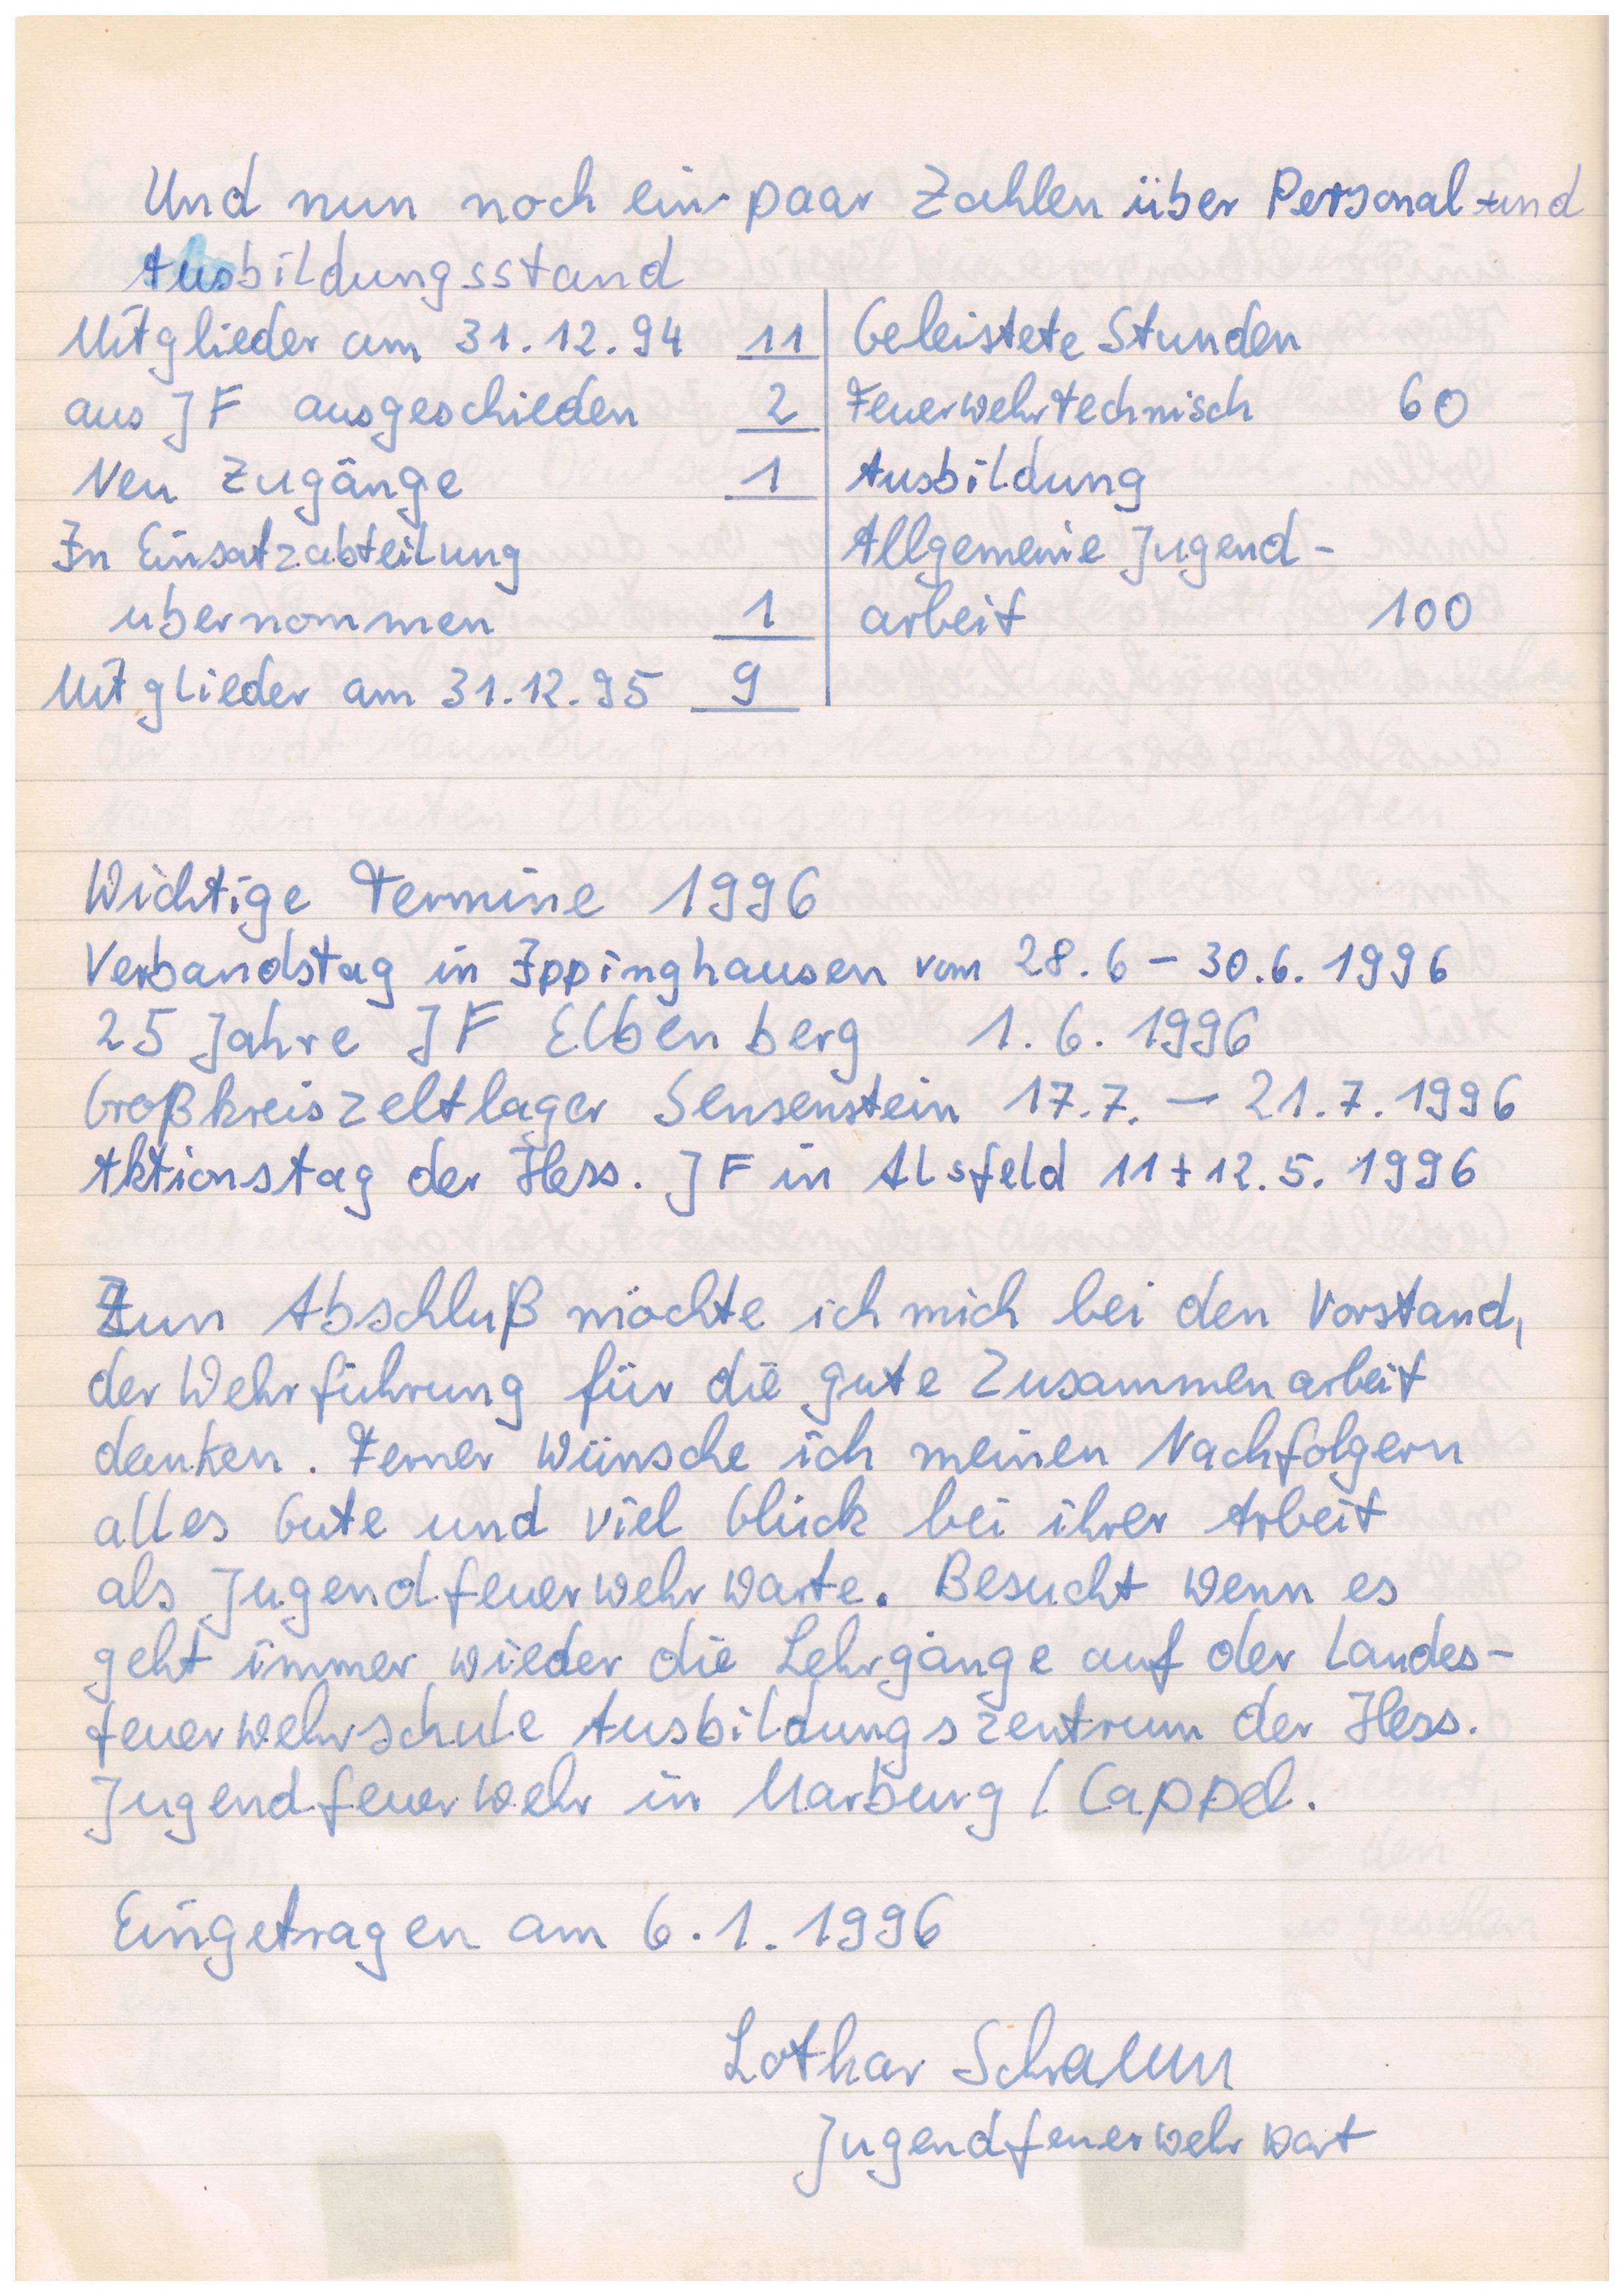 Und nun noch ein paar Zahlen über Personal und
Ausbildungsstand
Mitglieder am 31.12.94 11
aus JF ausgeschieden 2
Neu Zugänge 1
In Einsatzabteilung
übernommen 1
Mitglieder am 31.12.95 9
Geleistete Stunden
Feuerwehrtechnisch 60
Ausbildung
Allgemeine Jugend-
arbeit 100
Wichtige Termine 1996
Verbandstag in Ippinghausen vom 28.6 - 30.6. 1996
25 Jahre JF Elbenberg 1. 6. 1996
Großkreiszeltlager Sensenstein 17.7. - 21.7.1996
Aktionstag der Hess. JF in Alsfeld 11 + 12.5. 1996
Zum Abschluß möchte ich mich bei den Vorstand,
der Wehrführung für die gute Zusammenarbeit
danken. Ferner wünsche ich meinen Nachfolgern
alles Gute und viel Glück bei ihrer Arbeit
als Jugendfeuerwehrwarte. Besucht wenn es
geht immer wieder die Lehrgänge auf der Landes-
feuerwehrschule Ausbildungszentrum der Hess.
Jugendfeuerwehr in Marburg / Cappel.
Eingetragen am 6.1.1996
Lothar Schramm
Jugendfeuerwehrwart